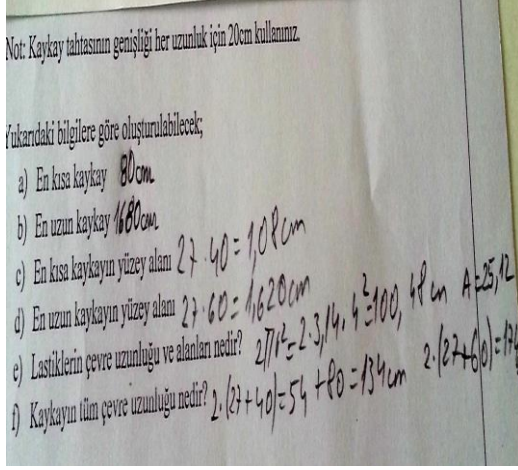 Not: Kaykay tahtasının genişliği her uzunluk için 20cm kullanınız.
Yukarıdaki bilgilere göre oluşturulabilecek;
a) En kısa kaykay 80cm
b) En uzun kaykay 1680cm
c) En kısa kaykayın yüzey alanı 27.40=1,08cm
d) En uzun kaykayın yüzey alanı 27.60=1,620cm
e) Lastiklerin çevre uzunluğu ve alanları nedir? 2πr²=2.3,14.4²=100,48cm A=25,12
f) Kaykayın tüm çevre uzunluğu nedir? 2.(27+40)=54+80=134cm 2.(27+60)=174